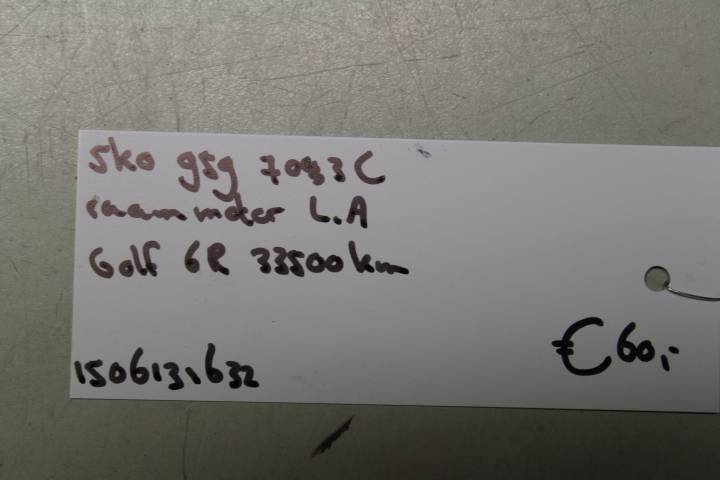 5k0 959 7043 C
raammotor L.A
Golf 6R 33500 km
1506131632
€ 60,-